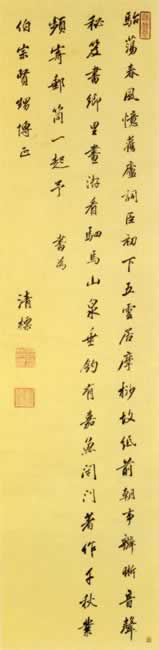 駘蕩春風憶舊廬詞臣初下五雲居摩挲故紙前朝事辨晰音聲
秘笈書鄉里晝游看駟馬山泉垂釣有嘉魚閉門著作千秋業
頻寄郵筒一起予 書為
伯宗賢甥博正
清標